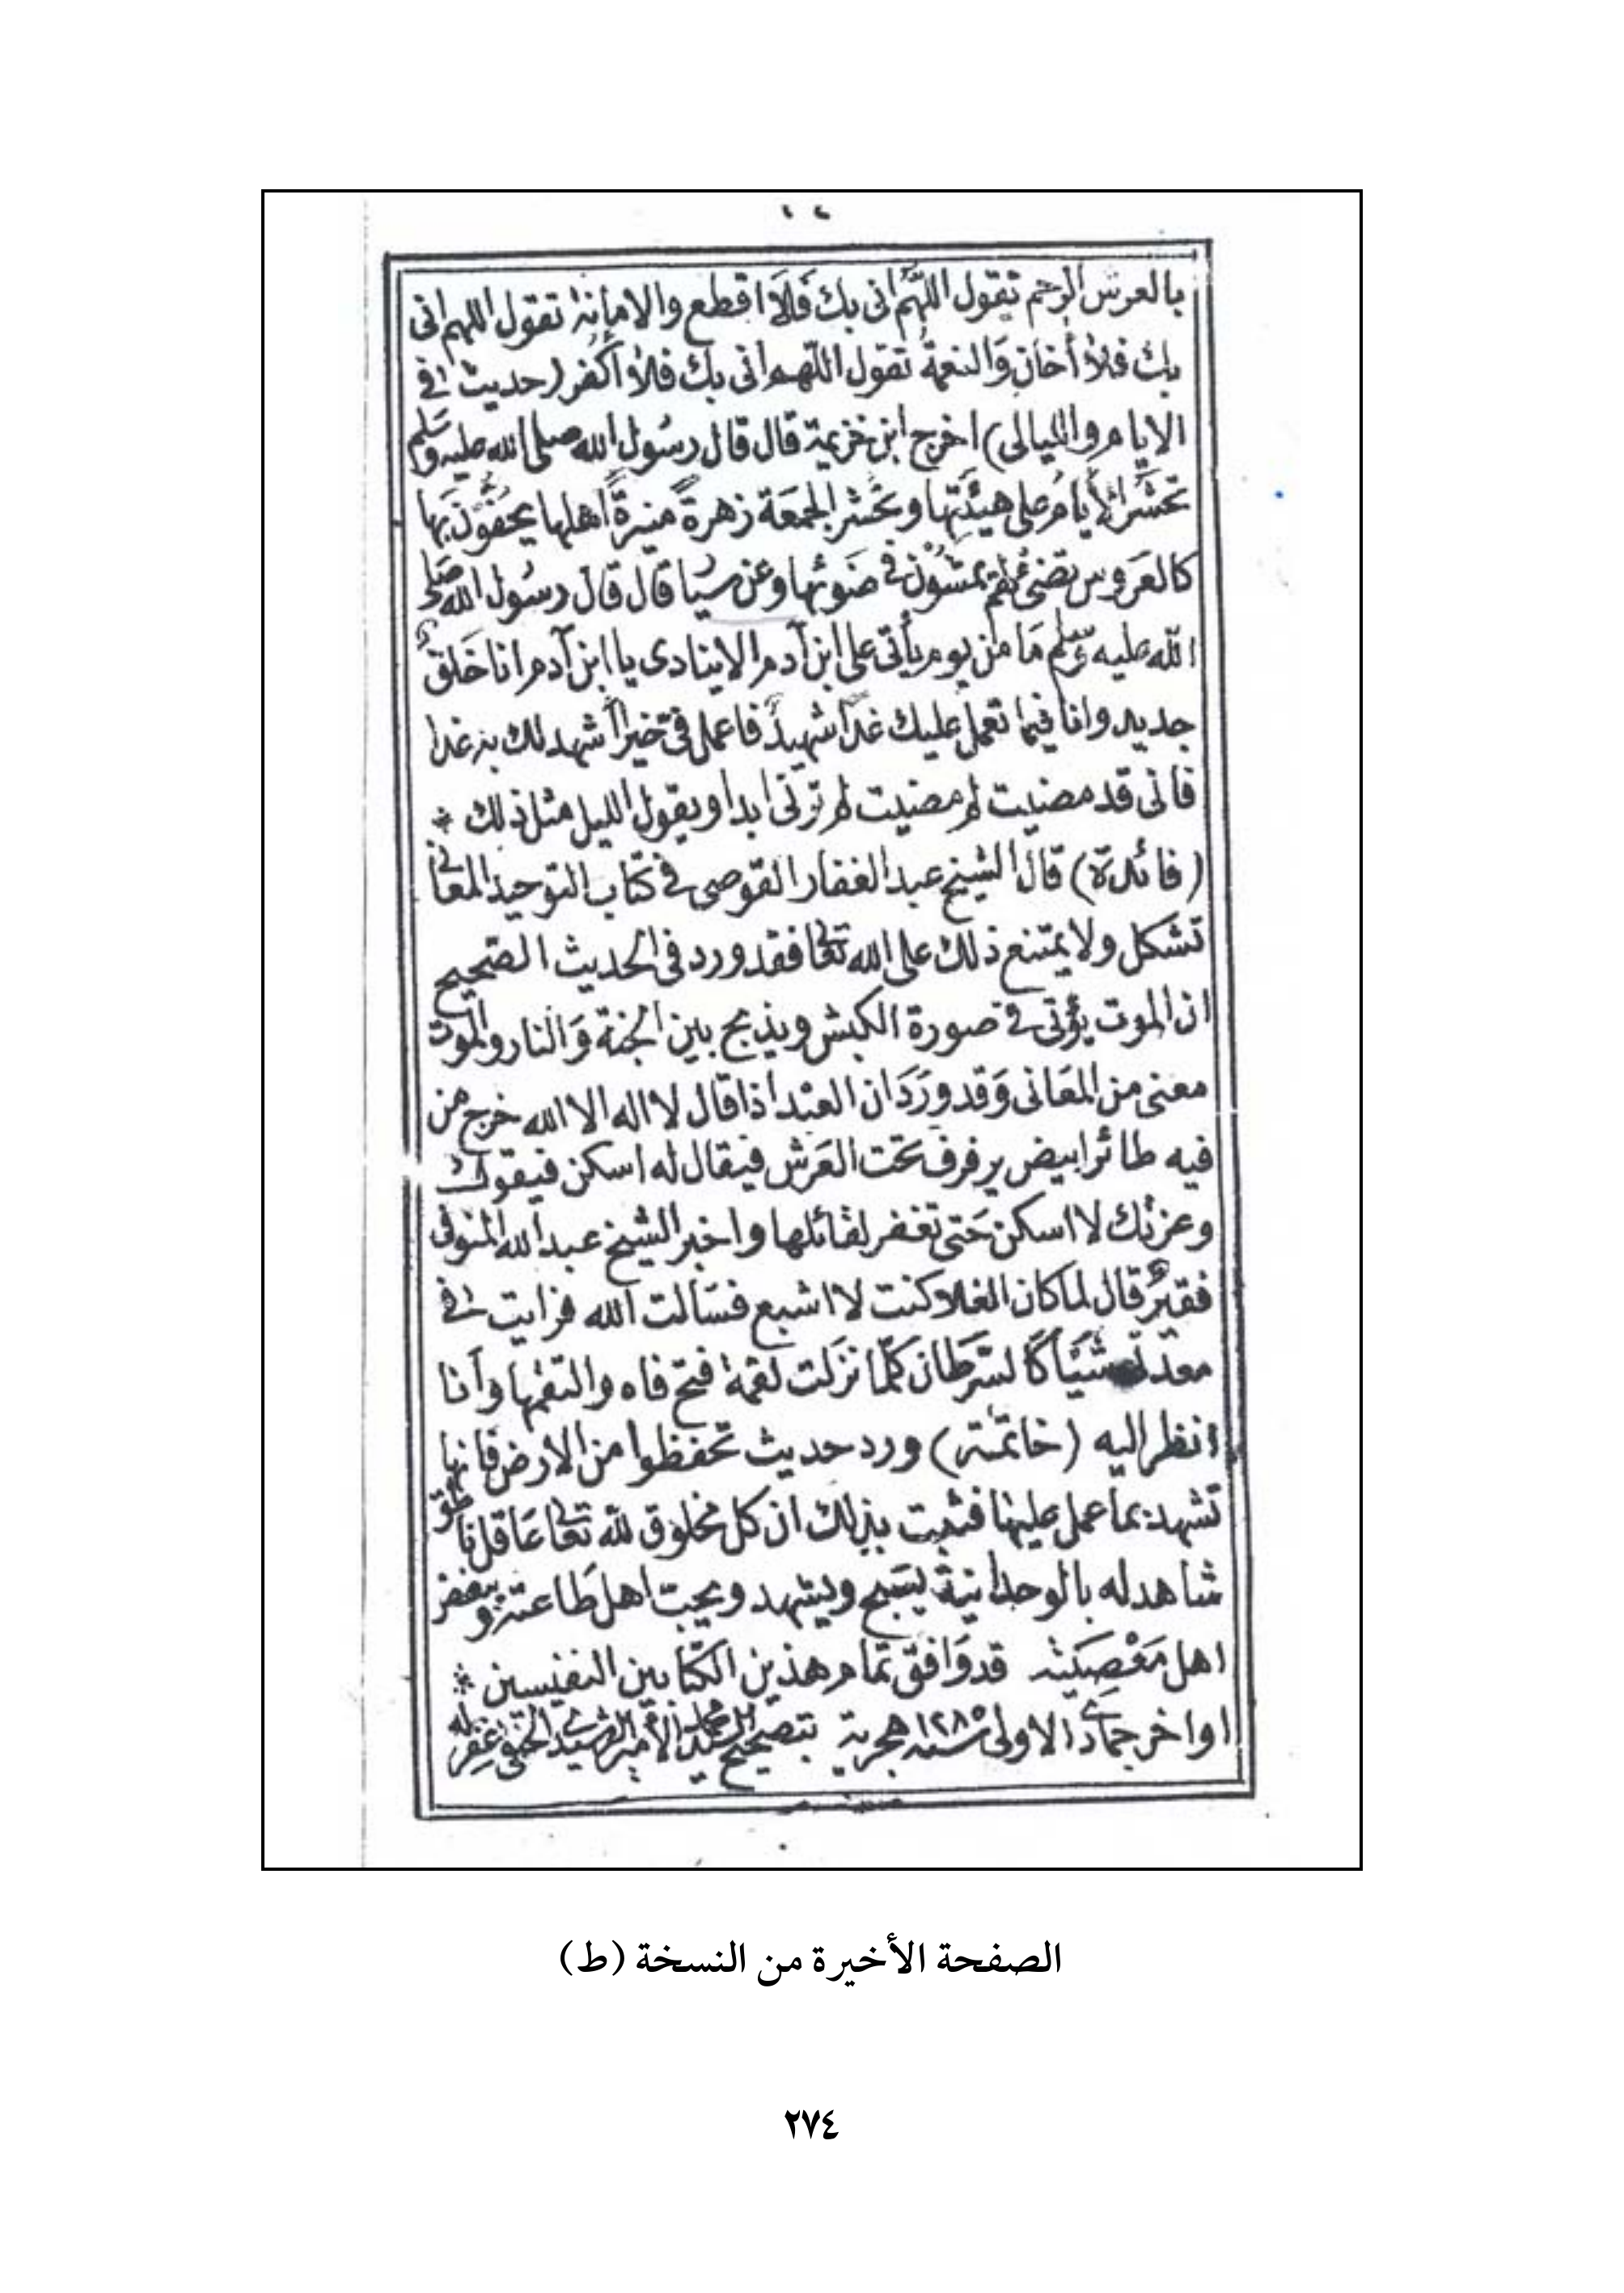 بالعرش الرحم تقول اللهم انى بك فلا اقطع والامانة تقول اللهم انى
بك فلا أخان والنعمة تقول اللهم انى بك فلا أكفر (حديث فى
الايام والليالى) اخرج ابن خزيمة قال قال رسول الله صلى الله عليه وسلم
تحشر الأيام على هيئتها وتحشر الجمعة زهرة منيرة اهلها يحفون بها
كالعروس تضئ لهم يمشون فى ضوئها وعن قال قال رسول الله صلى
الله عليه وسلم ما من يوم يأتى على ابن آدم الا ينادى يا ابن آدم انا خلق
جديد وانا فيما تعمل عليك غدا شهيد فاعمل فىّ خيرا أشهد لك به غدا
فانى قد مضيت لم ترنى ابدا ويقول الليل مثل ذلك *
(فائدة) قال الشيخ عبد الغفار القوصى فى كتاب التوحيد المعانى
تشكل ولا يمتنع ذلك على الله تعالى فقد ورد فى الحديث الصحيح
ان الموت يؤتى فى صورة الكبش ويذبح بين الجنة والنار والموت
معنى من المعانى وقد ورد ان العبد اذا قال لا اله الا الله خرج من
فيه طائر ابيض يرفرف تحت العرش فيقال له اسكن فيقول
وعزتك لا اسكن حتى تغفر لقائلها واخبر الشيخ عبد الله المنوفى
فقير قال لما كان الغلا كنت لا اشبع فسالت الله فرايت فى
معدته شيأ كالسرطان كلما نزلت لقمة فتح فاه والتقمها وأنا
انظر اليه (خاتمة) ورد حديث تحفظوا من الارض فانها
تشهد بما عمل عليها فثبت بذلك ان كل مخلوق لله تعالى عاقل ناطق
شاهد له بالوحدانية يسبح ويشهد ويحب اهل طاعته ويبغض
اهل معصيته قد وافق تمام هذين الكتابين النفيسين *
اواخر جمادى الاولى سنة ١٢٨٥ هجرية بتصحيح غفر له
الصفحة الأخيرة من النسخة (ط)
٢٧٤